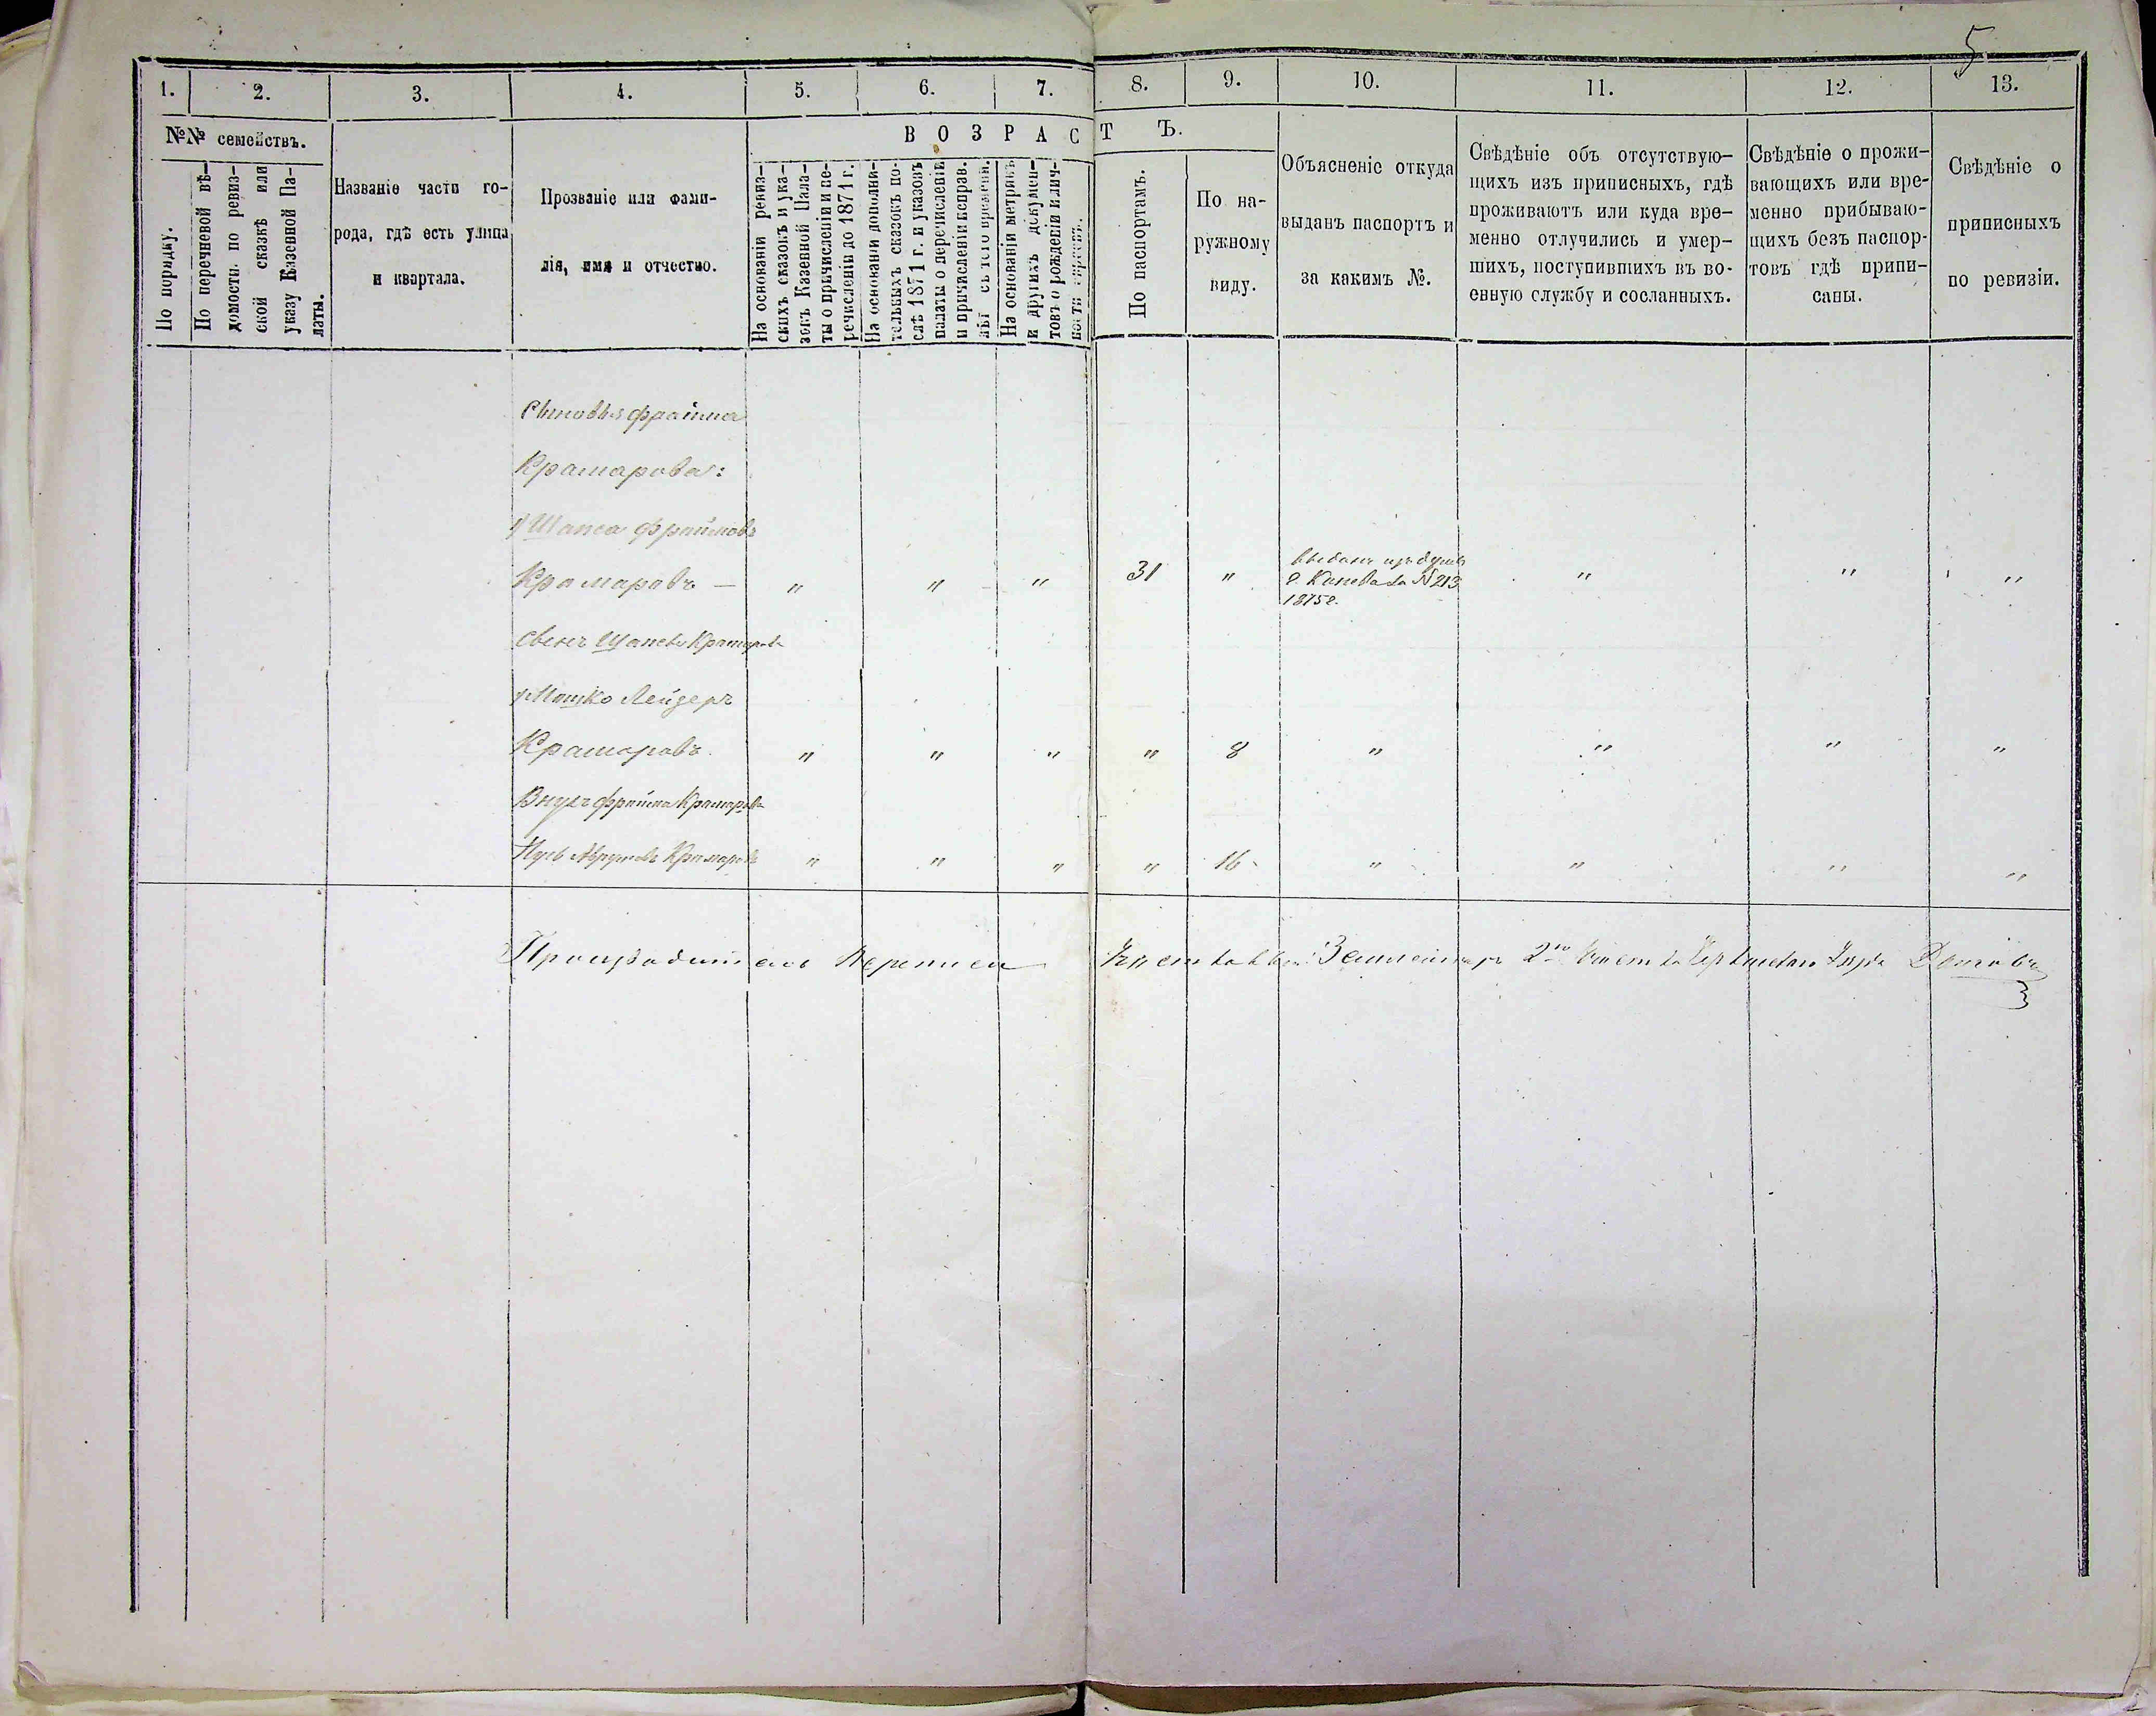 5
1. 2. 3. 4. 5. 6. 7. 8. 9. 10. 11. 12. 13.
№№ семействъ.
По порядку.
По перечневой вѣ-
домости по ревиз-
ской сказкѣ или
указу Казенной Па-
латы.
Названіе части го-
рода, гдѣ есть улица
и квартала.
Прозваніе или фами-
лія, имя и отчество.
ВОЗРАСТЪ.
На основаніи ревиз-
скихъ сказокъ и ука-
зовъ Казенной Пала-
ты о причисленіи и пе-
речисленіи до 1871 г.
На основаніи дополни-
тельныхъ сказокъ по-
слѣ 1871 г. и указовъ
палаты о перечисленіи
и причисленіи исправ.
лѣт съ того времени.
На основаніи метрикъ
и другихъ докумен-
товъ о рожденіи и лич-
ности евреевъ.
По паспортамъ.
По на-
ружному
виду.
Объясненіе откуда
выданъ паспортъ и
за какимъ №.
Свѣдѣніе объ отсутствую-
щихъ изъ приписныхъ, гдѣ
проживаютъ или куда вре-
менно отлучились и умер-
шихъ, поступившихъ въ во-
енную службу и сосланныхъ.
Свѣдѣніе о прожи-
вающихъ или вре-
менно прибываю-
щихъ безъ паспор-
товъ гдѣ припи-
саны.
Свѣдѣніе о
приписныхъ
по ревизіи.
Сыновья Фраима
Крамарова:
1) Шапса Фраимовъ
Крамаровъ — " " " 31 " " " "
выданъ изъ думы
г. Канева за № 213
1875 г.
Сынъ Шапсы Крамарова
1) Мошко Лейзеръ
Крамаровъ " " " " 8 " " " "
Внукъ Фраима Крамарова
Аврумовъ Крамаровъ " " " " 16 " " " "
Производитель Переписи Участковый Землемѣръ 2го Участка Уѣзда